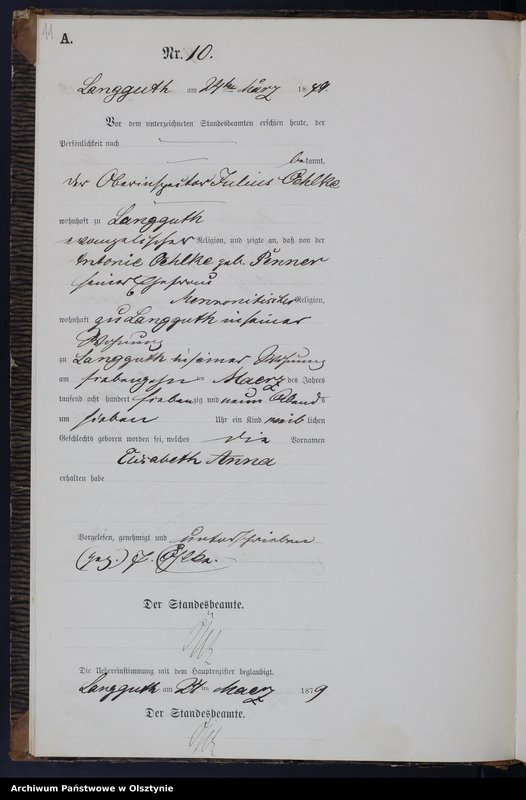 11
A.
Nr. 10.
Langguth am 24ten März 1879.
Vor dem unterzeichneten Standesbeamten erschien heute, der
Persönlichkeit nach
bekannt,
der Oberinspector Julius Oehlke
wohnhaft zu Langguth
evangelischer Religion, und zeigte an, daß von der
Antonie Oehlke geb. Penner
seiner Ehefrau
Mennonitischer Religion,
wohnhaft zu Langguth in seiner
Wohnung
zu Langguth in seiner Wohnung
am siebenzehn ten Maerz des Jahres
tausend acht hundert siebenzig und neun Abends
um sieben Uhr ein Kind weiblichen
Geschlechts geboren worden sei, welches die Vornamen
Elisabeth Anna
erhalten habe
Vorgelesen, genehmigt und unterschrieben
(gez.) J. Oehlke.
Der Standesbeamte.
Die Uebereinstimmung mit dem Hauptregister beglaubigt.
Langguth am 24ten Maerz 1879
Der Standesbeamte.
Archiwum Państwowe w Olsztynie